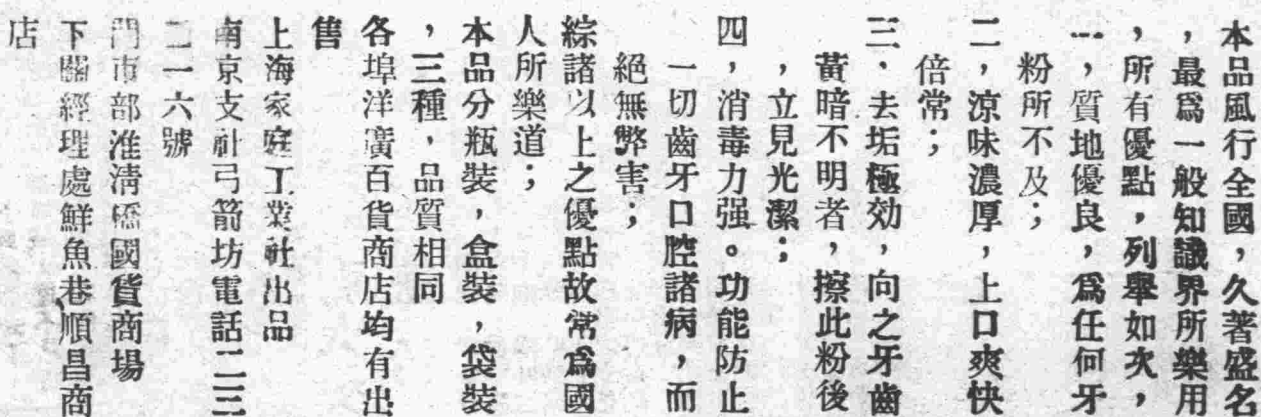 本品風行全國，久著盛名
，最爲一般知識界所樂用
，所有優點，列舉如次，
一，質地優良，爲任何牙
粉所不及；
二，涼味濃厚，上口爽快
倍常；
三、去垢極効，向之牙齒
黃暗不明者，擦此粉後
，立見光潔；
四，消毒力强。功能防止
一切齒牙口腔諸病，而
絕無弊害；
綜諸以上之優點故常爲國
人所樂道；
本品分瓶裝，盒裝，袋裝
，三種，品質相同
各埠洋廣百貨商店均有出
售
上海家庭工業社出品
南京支社弓箭坊電話二三
二一六號
門市部淮淸橋國貨商場
下關經理處鮮魚巷順昌商
店